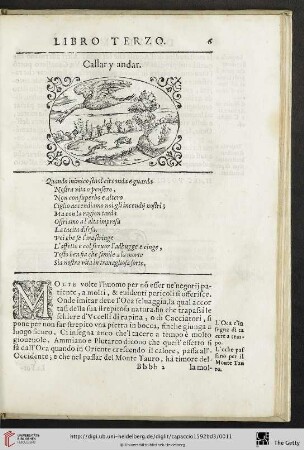 LIBRO TERZO. 6
Callar y andar.
Quando inimico stuol circonda e guarda
Nostra vita o pensero,
Non con superbo e altero
Ciglio accendiamo noi gli incendij nostri;
Ma con la ragion tarda
Offriamo a l'alta impresa
La tacita difesa.
Poi che se l'
L'affetto e col furore l'adhugge e cinge,
Tosto ben sia che simile a la morte
Sia nostra vita in travagliosa sorte.
MOLTE volte l'huomo per nō esser ne' negotij pa-
tiente, a molti, & euidenti pericoli si offerisce.
Onde imitar deue l'Oca seluaggia, la qual accor-
tasi della sua strepitosa natura fin che trapassi le
schiere d'Vccelli di rapina, o di Cacciatori, si
pone per non far strepito vna pietra in bocca, finche giunga a
luogo sicuro. Ci insegna anco che'l tacere a tempo è molto
gioueuole. Ammiano e Plutarco dicono che quest'effetto si
fà dall'Oca quando in Oriente crescendo il calore, passa all'
Occidente; e che nel passar del Monte Tauro, hà timore del-
Bbbb 2 la mol-
L'Oca è in-
segna di ta-
cere a tem-
po.
L'oche pas-
sano per il
Monte Tau
ro.
http://digi.ub.uni-heidelberg.de/diglit/capaccio1592bd3/0011
UNIVERSITÄTS-
BIBLIOTHEK
HEIDELBERG
The Getty